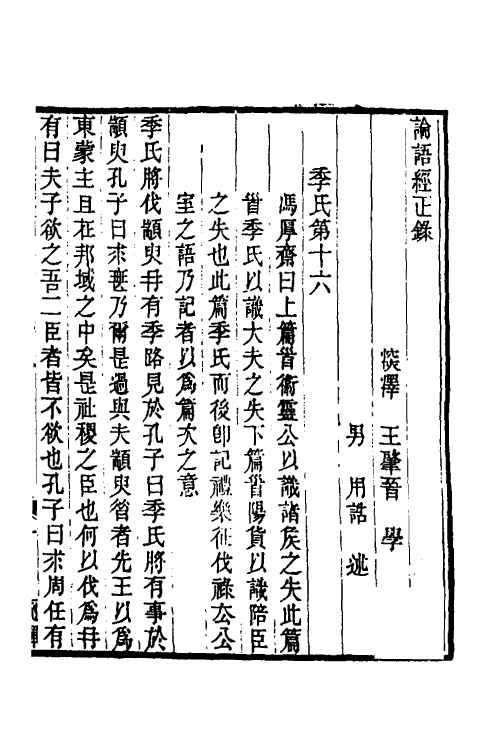 論語經正錄
筱澤 王肇晉 學
男 用誥 述
季氏第十六
馮厚齋曰上篇首衞靈公以譏諸矦之失此篇
首季氏以譏大夫之失下篇首陽貨以譏陪臣
之失也此篇季氏而後卽記禮樂征伐祿去公
室之語乃記者以爲篇次之意
季氏將伐顓臾冉有季路見於孔子曰季氏將有事於
顓臾孔子曰求無乃爾是過與夫顓臾昔者先王以爲
東蒙主且在邦域之中矣是社稷之臣也何以伐爲冉
有曰夫子欲之吾二臣者皆不欲也孔子曰求周任有